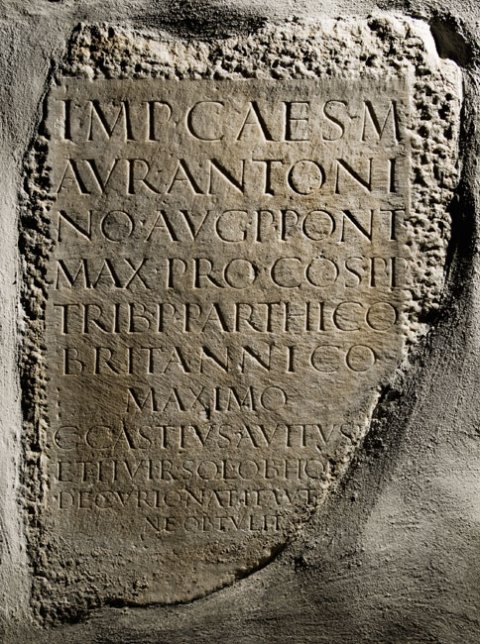 IMP·CAES·M
AVR·ANTONI
NO·AVG·P·P·PONT
MAX·PRO·COS·PI
TRIB·P·PARTHICO
BRITANNICO
MAXIMO
C·CASTIVS·AVITVS
ET II VIR SOLO
DECVRIONAT
NE OBTVLIT